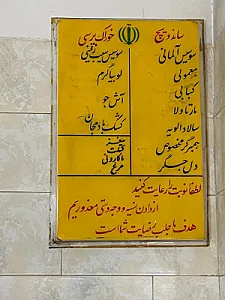 ساندویچ
سوسیس آلمانی
معمولی
کتابی
مارتادلا
سالاد الویه
همبرگر مخصوص
دل جگر
خوراک پرسی
سوسیس سیب زمینی
لوبیا گرم
آش جو
کشک بادمجان
ماکارونی
مرغ
لطفا نوبت را رعایت کنید
از دادن نسیه و وجه دستی معذوریم
هدف ما جلب رضایت شما است